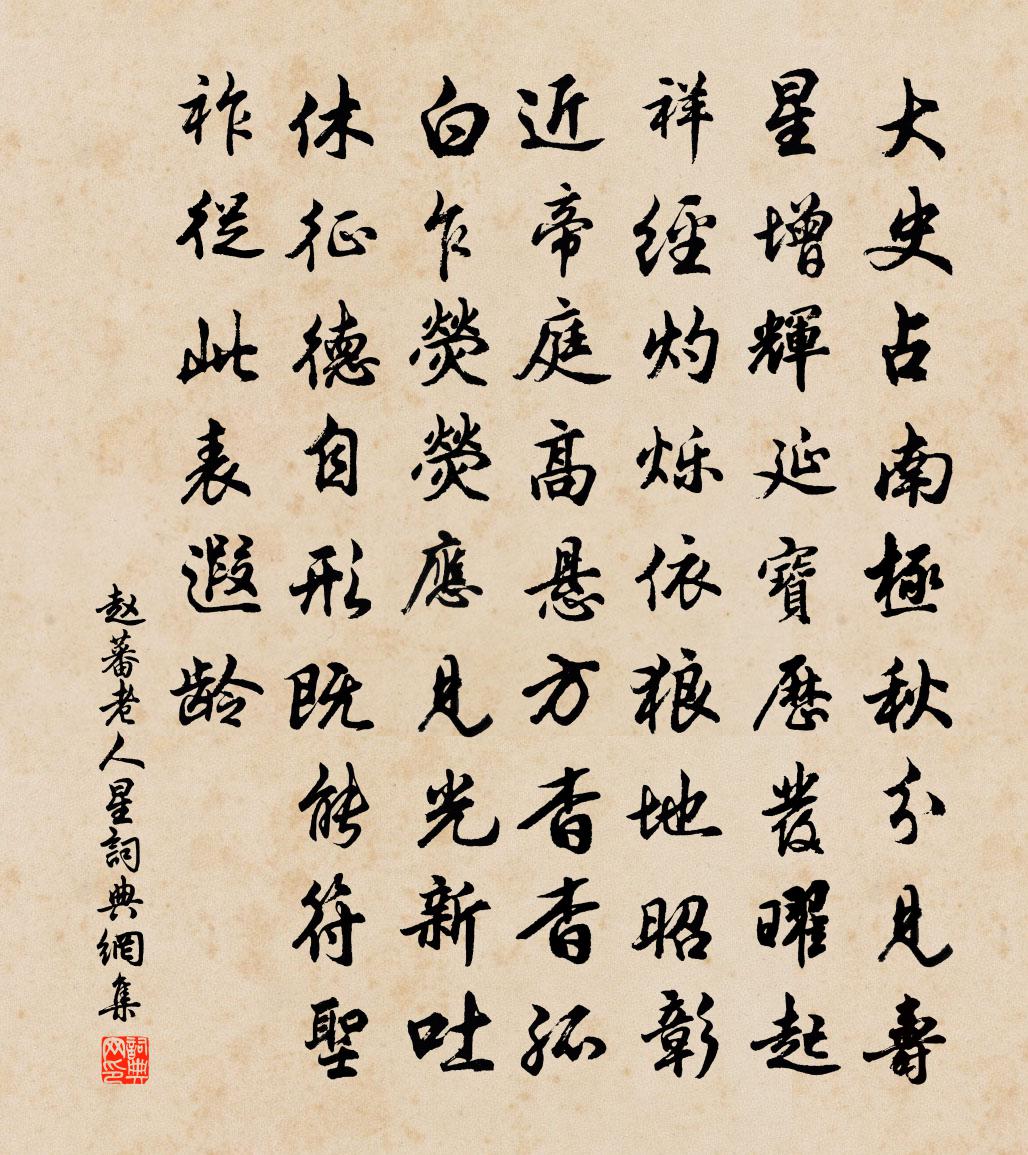 大史占南極秋分見壽
星增輝延寶曆發曜起
祥經灼烁依狼地昭彰
近帝庭高悬方杳杳孤
白乍熒熒應見光新吐
休征德自形既能符聖
祚從此表遐龄
赵蕃老人星詞典網集
詞典网印